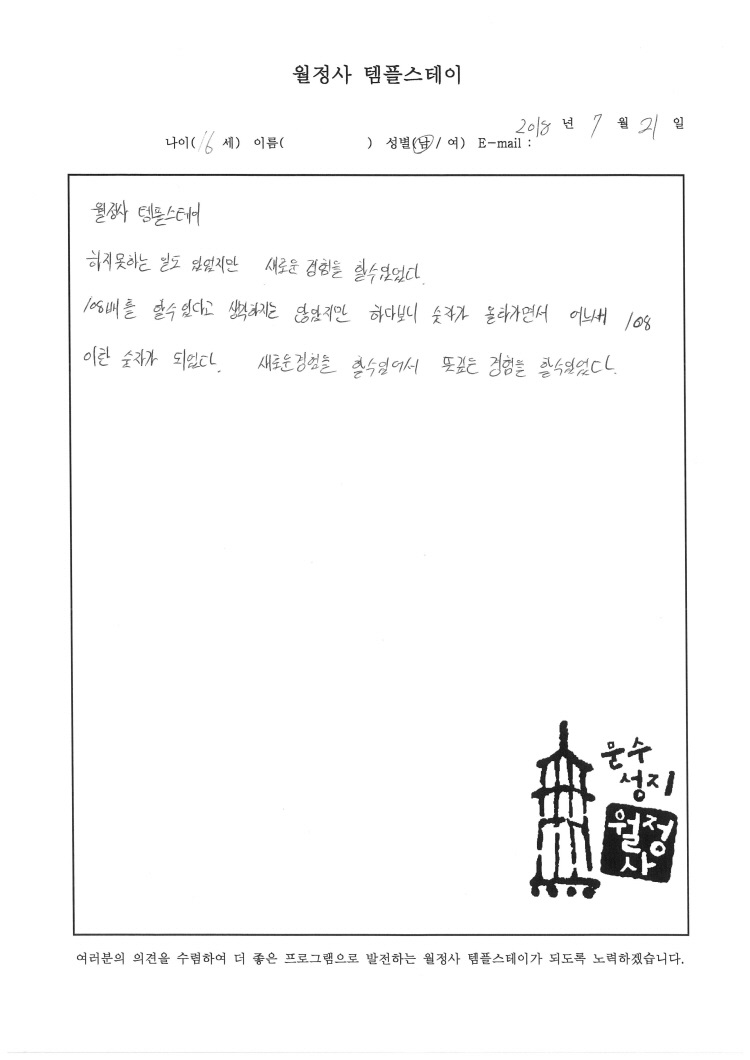 월정사 템플스테이
2018 년 7 월 21 일
나이(16 세) 이름( ) 성별(남/ 여) E-mail :
월정사 템플스테이
하지못하는 일도 있었지만 새로운 경험을 할수있었다.
108배를 할수있다고 생각하지는 않았지만 하다보니 숫자가 올라가면서 어느새 108
이란 숫자가 되었다. 새로운경험을 할수있어서 뜻깊은 경험을 할수있었다.
문수
성지
월정
사
여러분의 의견을 수렴하여 더 좋은 프로그램으로 발전하는 월정사 템플스테이가 되도록 노력하겠습니다.